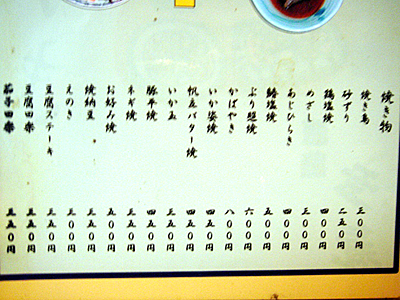 焼き物
焼き鳥 三〇〇円
砂ずり 二五〇円
鶏塩焼 四〇〇円
めざし 三〇〇円
あじひらき 四〇〇円
塩焼 五〇〇円
ぶり照焼 六〇〇円
かばやき 八〇〇円
いか姿焼 四五〇円
帆立バター焼 四五〇円
いか玉 三五〇円
豚平焼 四五〇円
ネギ焼 三五〇円
お好み焼 五〇円
焼納豆 三〇〇円
えのき 三〇〇円
豆腐ステーキ 三五〇円
豆腐田楽 三五〇円
茄子田楽 三五〇円